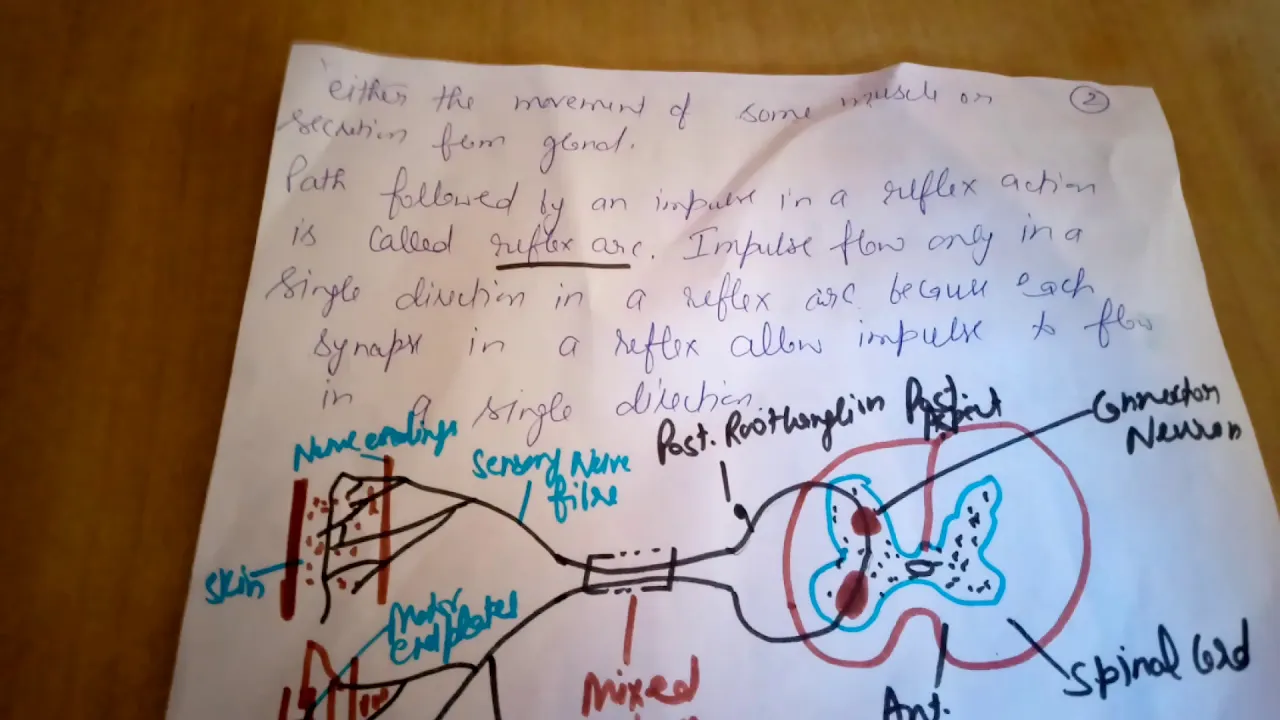 either the movement of some muscle or
②
secretion from gland.
Path followed by an impulse in a reflex action
is called reflex arc. Impulse flow only in a
single direction in a reflex arc because each
synapse in a reflex allow impulse to flow
in a single direction
Nerve endings
Sensory Nerve
fibre
Post.
Post.
Connector
Neuron
Skin
Motor
end plates
Mixed
Ant.
Spinal Cord